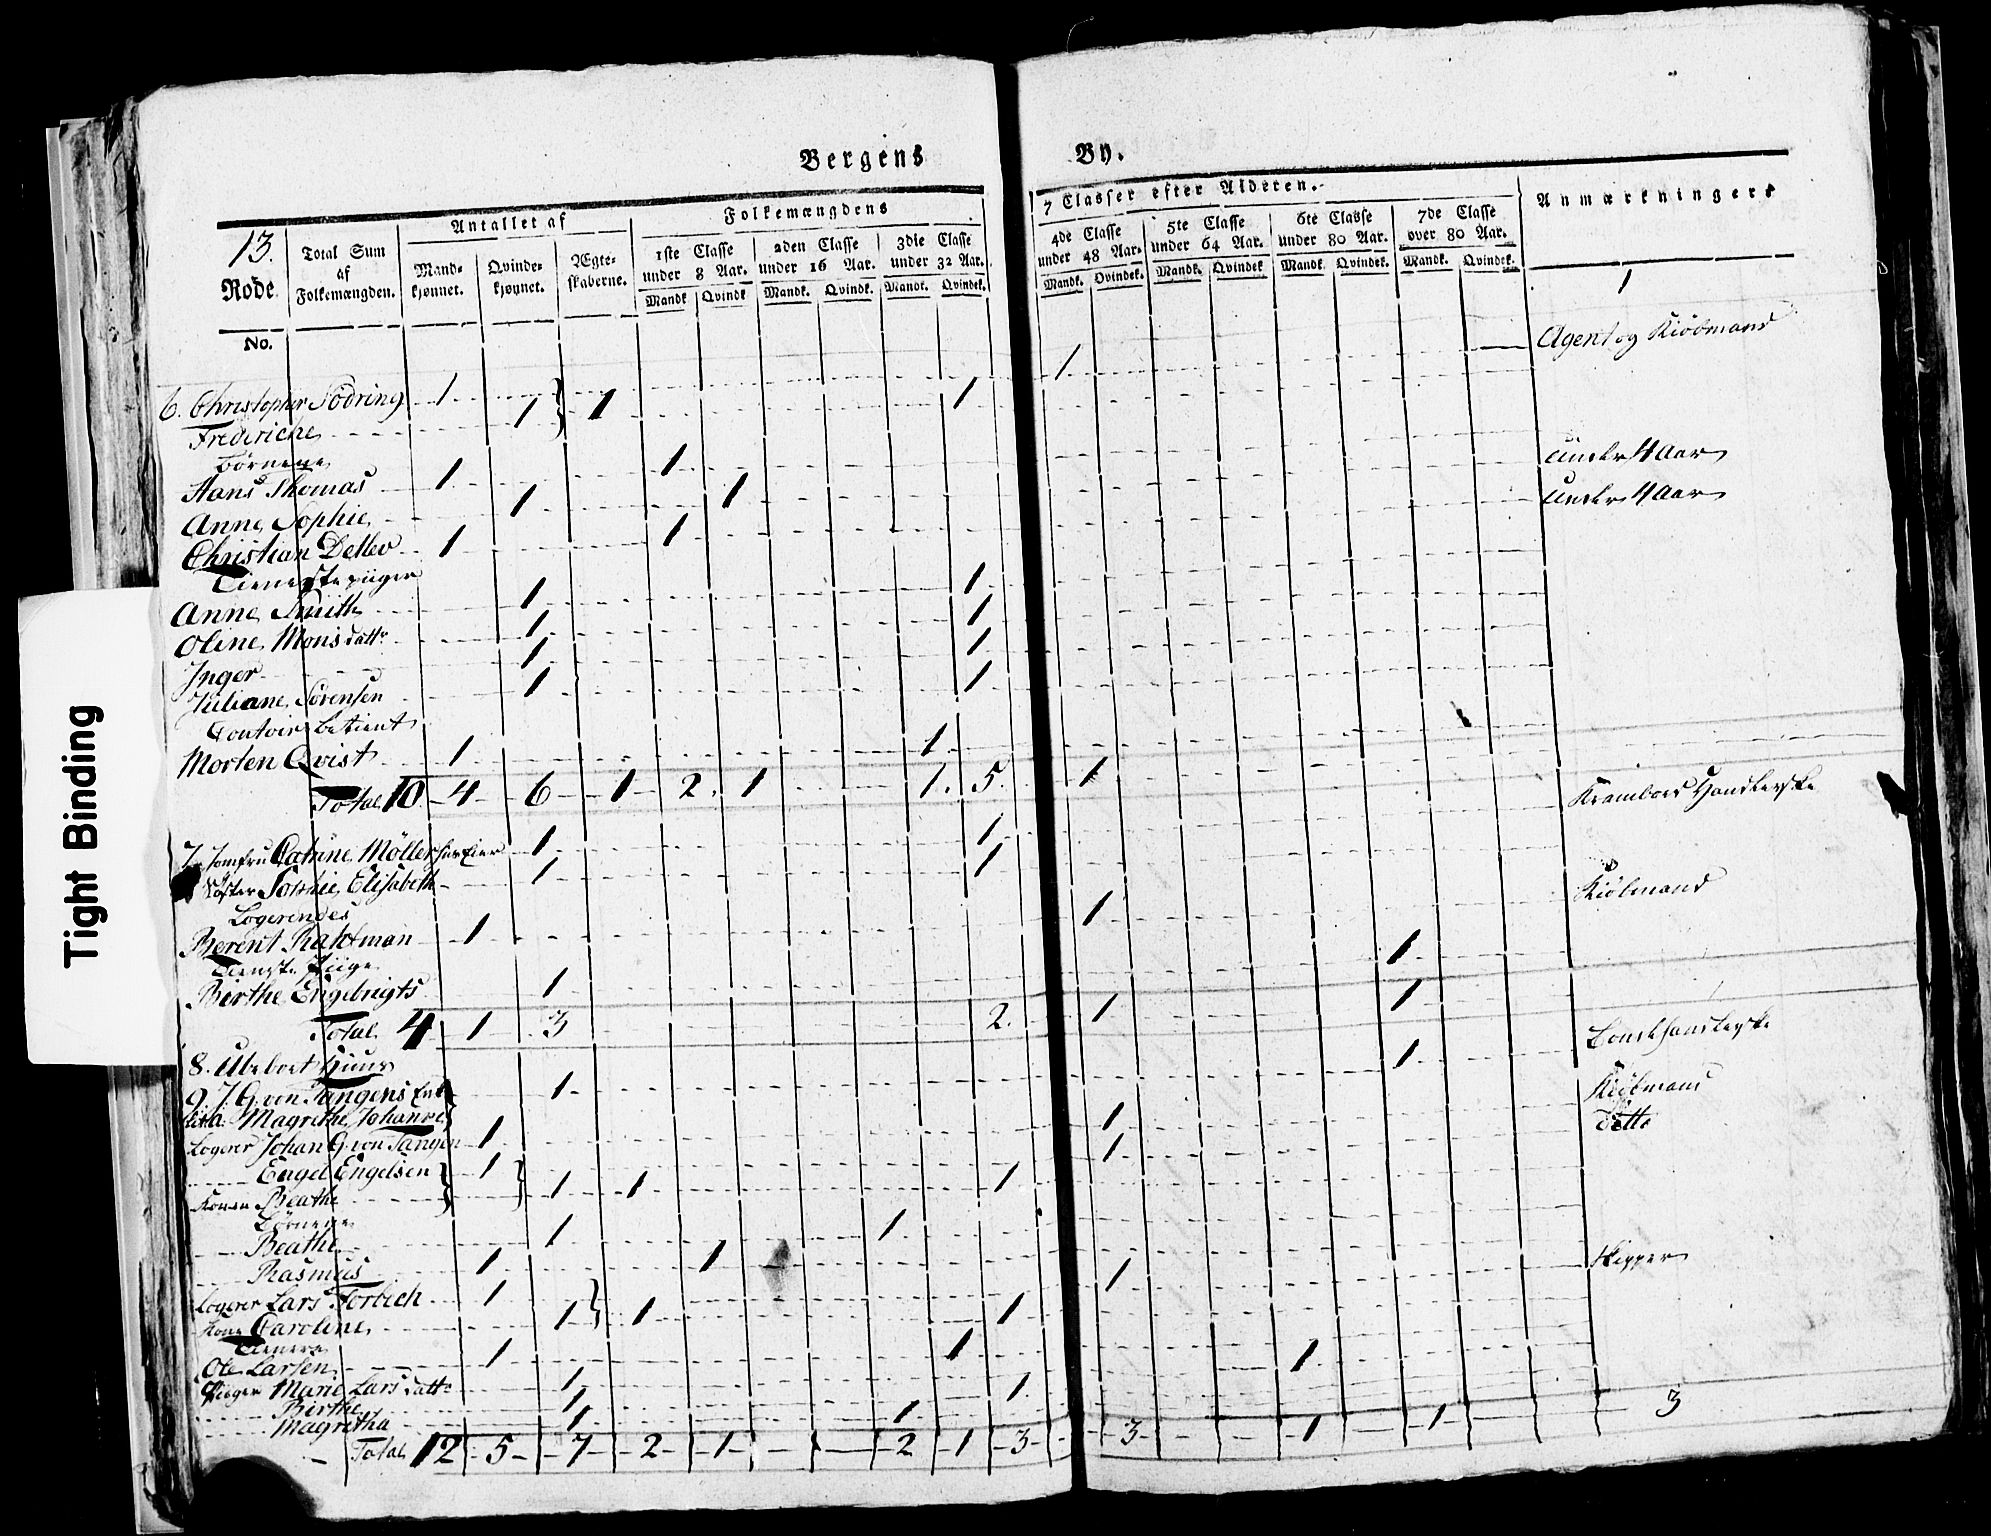 Tight Binding
Bergens By.
13. Rode.
No.
Total Sum af Folkemængden.
Antallet af
Mandkjønnet.
Qvindekjønnet.
Ægteskaberne.
Folkemængdens 7 Classer efter Alderen.
1ste Classe under 8 Aar.
2den Classe under 16 Aar.
3die Classe under 32 Aar.
4de Classe under 48 Aar.
5te Classe under 64 Aar.
6te Classe under 80 Aar.
7de Classe over 80 Aar.
Mandk. Qvindk. Mandk. Qvindk. Mandk. Qvindek. Mandk. Qvindek. Mandk. Qvindek. Mandk. Qvindek. Mandk. Qvindek.
Anmærkninger
1
6. Christopher Södring 1 } 1 1 Agent og Kiöbmand
Frederiche 1 1
Börnene
Hans Thomas 1 1 under 4 Aar
Anne Sophie 1 1
Christian Detlev 1 1 under 4 Aar
Tieneste piiger
Anne Smith 1 1
Oline Monsdattr 1 1
Inger 1 1
Juliane Sörensen 1 1
Contoir betient
Morten Qvist 1 1
Total 10 4 6 1 2 1 1 5 1
7. Jomfru Catrine Möller 1 1 Krambod Handlerske
Söster Sophie Elisabeth 1 1
Logerendes
Berent Rahtman 1 1 Kiöbmand
Tieneste Piige
Birthe Engebrigts 1 1
Total 4 1 3 2 1 1
8.
9. J. G. von Tangens
Magrethe Johanne 1 1
Logerer Johan G. von Tangen 1 1 Kiöbmand
Engel Engelsen 1 } 1 ditto
Konen Beathe 1 1 1
Börnene
Beathe 1 1
Rasmus 1 1
Logerer Lars Forbech 1 } 1 Skipper
Kone Caroline 1 1 1
Tienere
Ole Larsen 1 1
Piiger Marie Larsdattr 1 1
Birthe 1 1
Magretha 1 1
Total 12 5 7 2 1 2 1 3 3 1 1 3